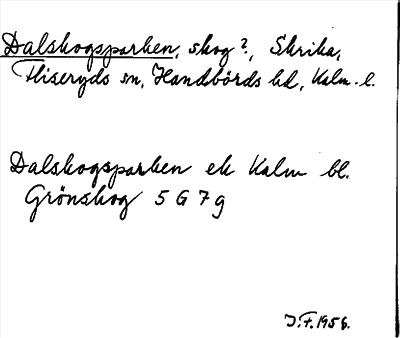 Dalskogsparken, skog?, Skrika,
Fliseryds sn, Handbörds hd, Kalm. l.
Dalskogsparken ek Kalm bl.
Grönskog 5 G 7 g
J.F. 1956.